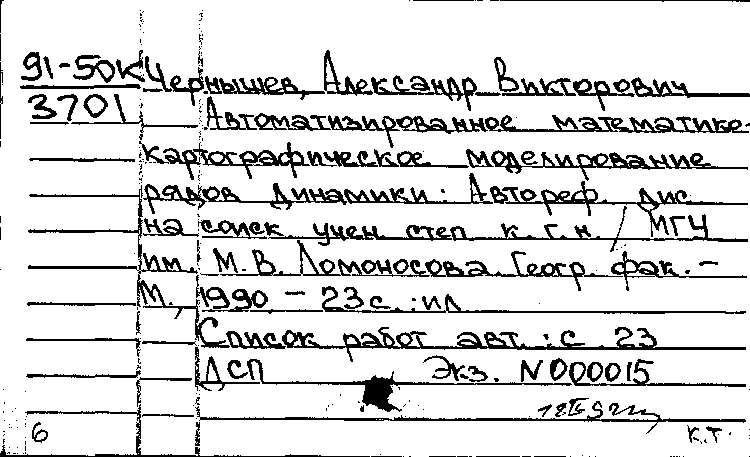 91-50К Чернышев, Александр Викторович
3701 Автоматизированное математико-
картографическое моделирование
рядов динамики: Автореф. дис.
на соиск. учен. степ. к. г. н. / МГУ
им. М. В. Ломоносова. Геогр. фак. –
М., 1990. – 23 с. : ил
Список работ авт. : с. 23
ДСП Экз. N 000015
6 К.Т.